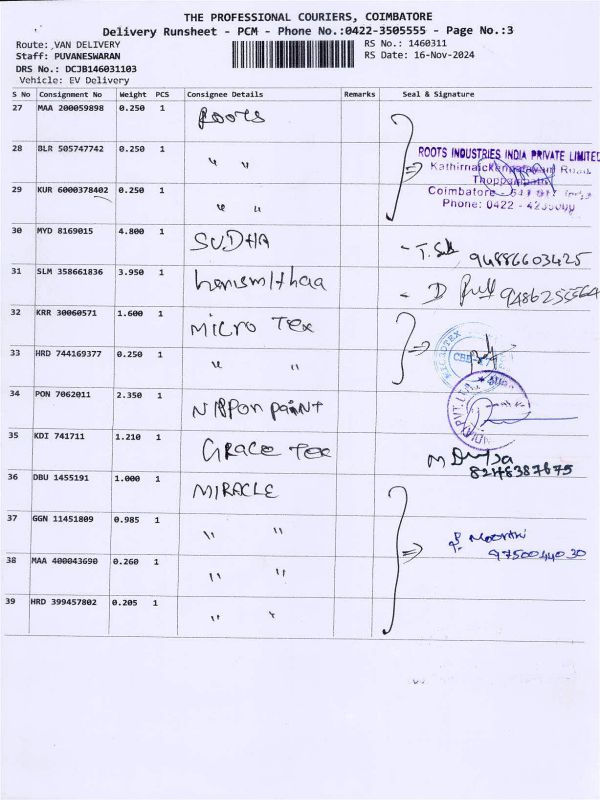 THE PROFESSIONAL COURIERS, COIMBATORE
Delivery Runsheet - PCM - Phone No.:0422-3505555 - Page No.:3
Route: VAN DELIVERY RS No.: 1460311
Staff: PUVANESWARAN RS Date: 16-Nov-2024
DRS No.: DCJB146031103
Vehicle: EV Delivery
S No Consignment No Weight PCS Consignee Details Remarks Seal & Signature
27 MAA 200059898 0.250 1 Roots
28 BLR 505747742 0.250 1 " "
ROOTS INDUSTRIES INDIA PRIVATE LIMITED
Kathirnaickenpalayam Road
Thoppampatti
29 KUR 6000378402 0.250 1 " "
Coimbatore - 641 017
Phone: 0422 - 4235000
30 MYD 8169015 4.800 1 SUDHA - T. 94886603425
31 SLM 358661836 3.950 1 - D
32 KRR 30060571 1.600 1 MICRO TEX
MICROTEX
33 HRD 744169377 0.250 1 " "
34 PON 7062011 2.350 1 NIPPON PAINT
35 KDI 741711 1.210 1 GRACE TEX
8248387675
36 DBU 1455191 1.000 1 MIRACLE
37 GGN 11451809 0.985 1 " "
Moorthi
9750044030
38 MAA 400043690 0.260 1 " "
39 HRD 399457802 0.205 1 " "